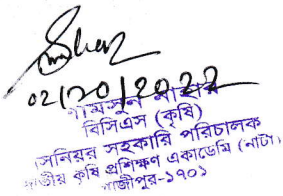 ০২/১০/২০২২
বিসিএস (কৃষি)
সিনিয়র সহকারি পরিচালক
জাতীয় কৃষি প্রশিক্ষণ একাডেমি (নাটা)
গাজীপুর-১৭০১